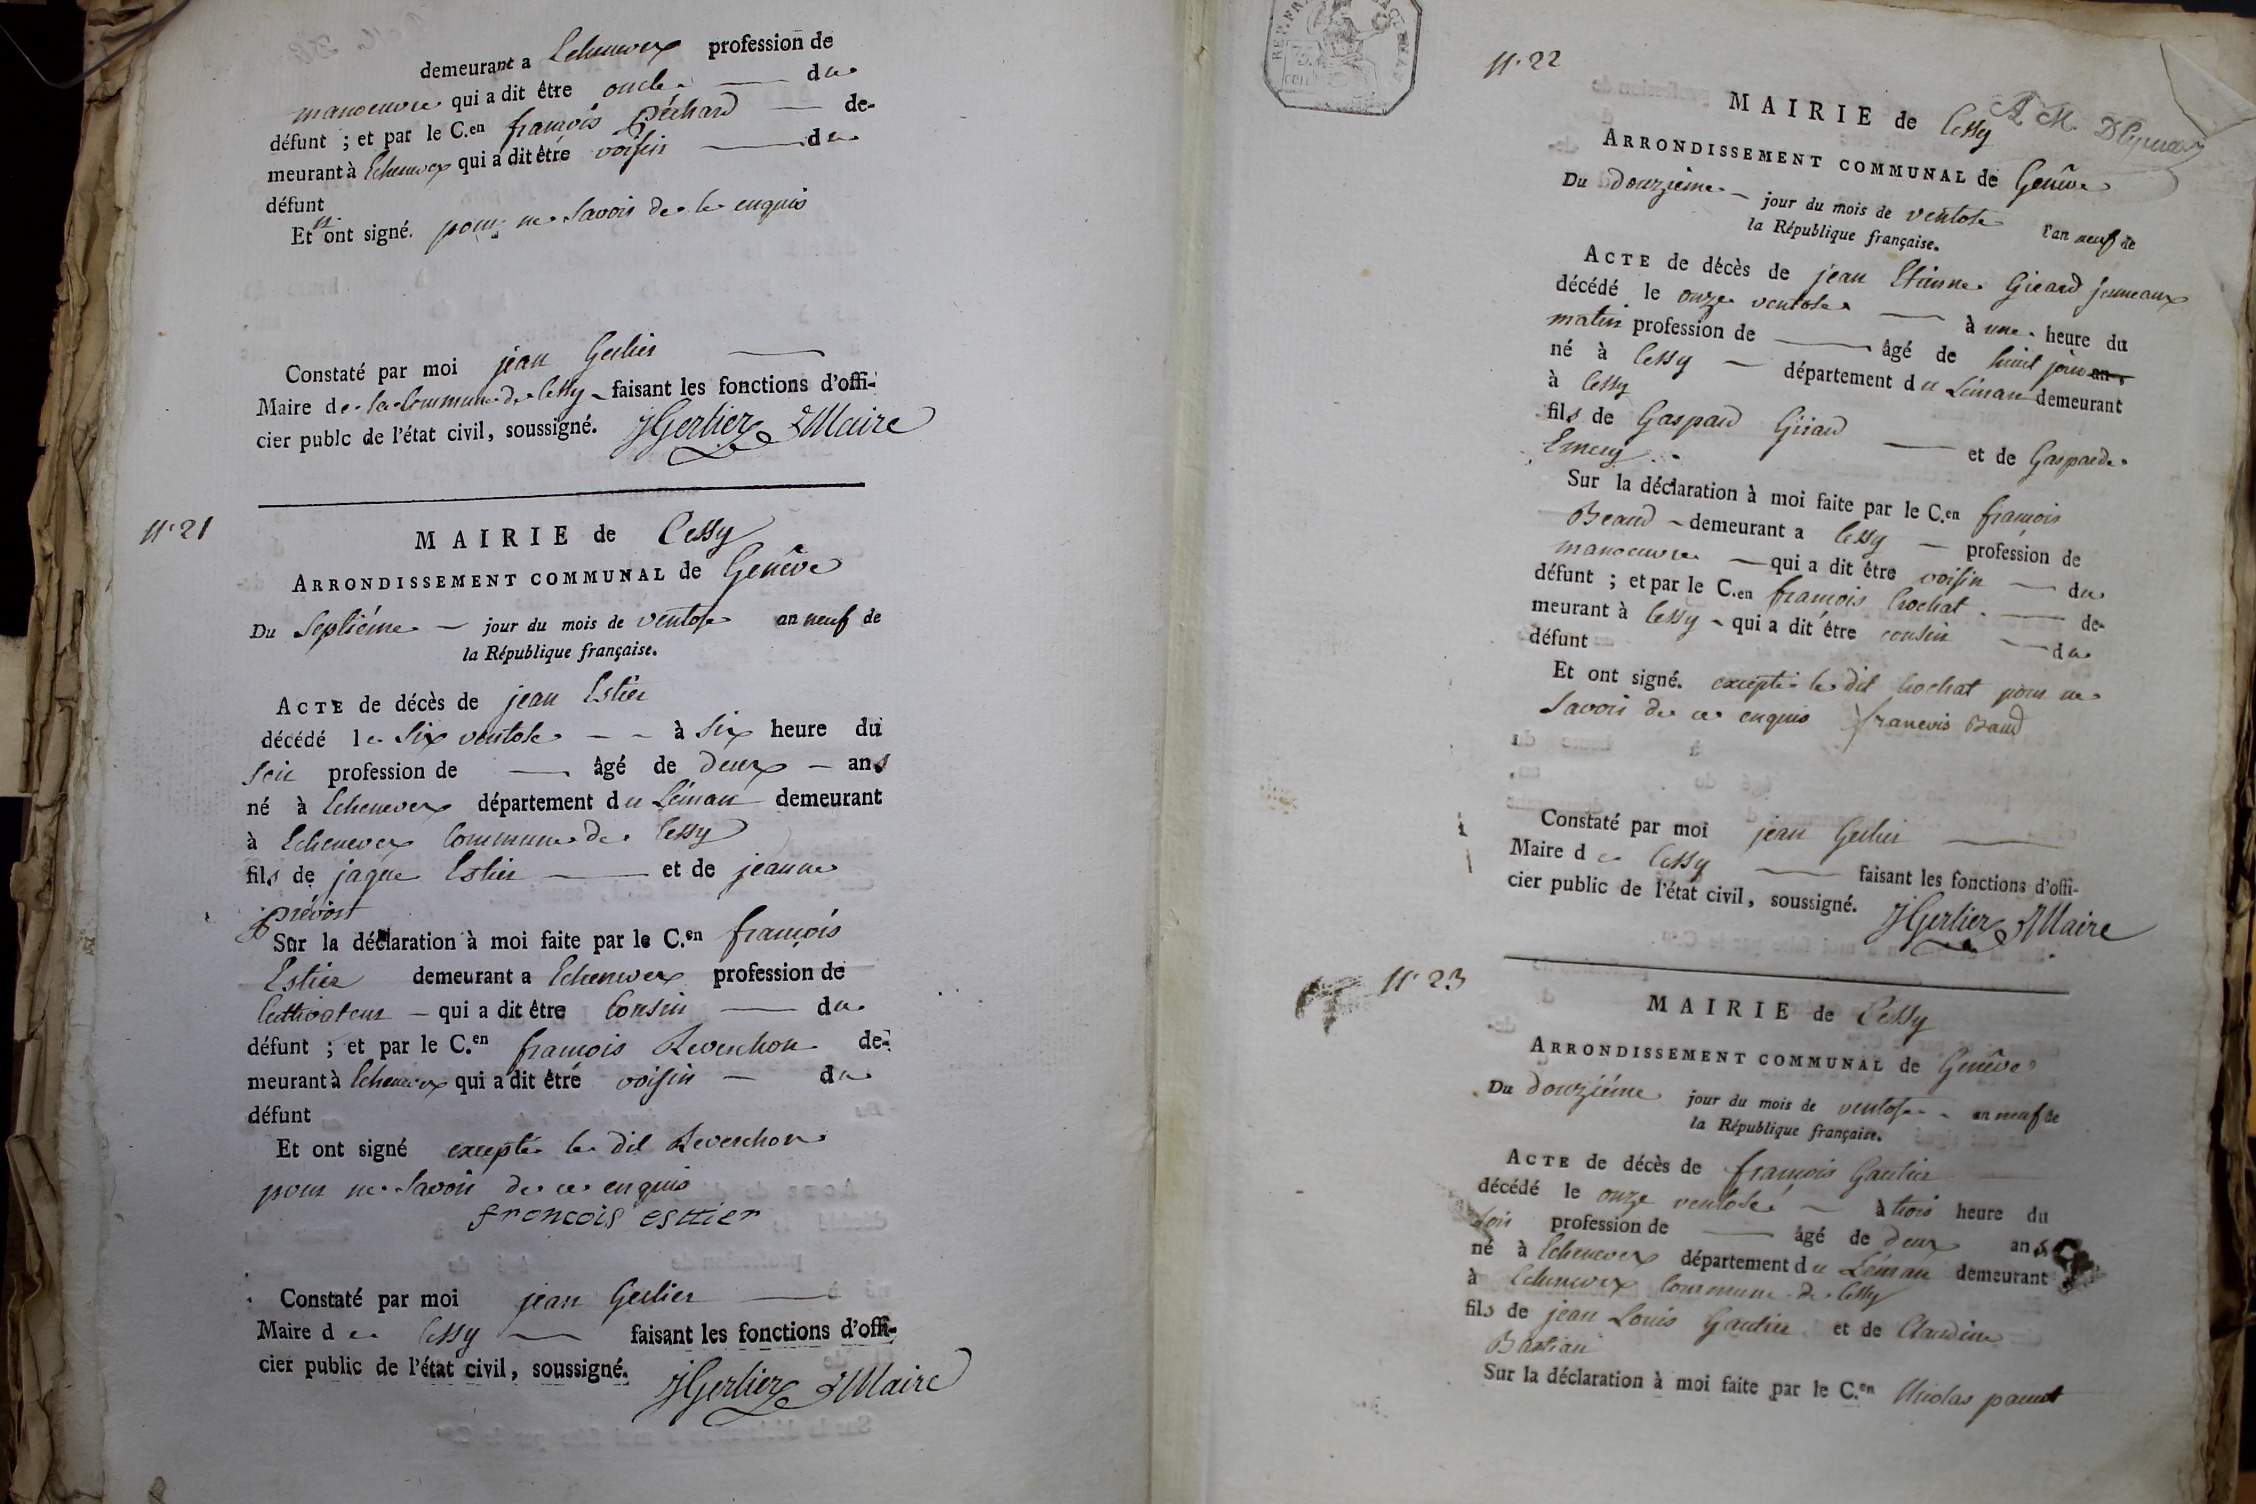 demeurant a Echenevex profession de
manoeuvre qui a dit être oncle du
défunt ; et par le C.en françois péchard de-
meurant à Echenevex qui a dit être voisin du
défunt
Et n'ont signé. pour ne Savoir de ce enquis
Constaté par moi jean Gerlier
Maire de la Commune de Cessy faisant les fonctions d'offi-
cier publc de l'état civil, soussigné. JGerlier Maire
N.° 21
MAIRIE de Cessy
ARRONDISSEMENT COMMUNAL de Genêve
Du Septiéme jour du mois de ventose an neuf de
la République française.
ACTE de décès de jean Estier
décédé le Six ventose à Six heure du
Soir profession de âgé de deux ans
né à Echenevex département du Léman demeurant
à Echenevex Commune de Cessy
fils de jaque Estier et de jeanne
prévost
Sur la déclaration à moi faite par le C.en françois
Estier demeurant a Echenevex profession de
Cultivateur qui a dit être Cousin du
défunt ; et par le C.en françois Reverchon de-
meurant à Echenevex qui a dit être voisin du
défunt
Et ont signé excepté le dit Reverchon
pour ne Savoir de ce enquis
froncois esttier
Constaté par moi jean Gerlier
Maire de Cessy faisant les fonctions d'offi-
cier public de l'état civil, soussigné. JGerlier Maire
REP. FRA
N.° 22
MAIRIE de Cessy
ARRONDISSEMENT COMMUNAL de Genêve
Du douzieme jour du mois de ventose l'an neuf de
la République française.
ACTE de décès de jean Etienne Girard jumeaux
décédé le onze ventose à une heure du
matin profession de âgé de huit jour ans
né à Cessy département du Léman demeurant
à Cessy
fils de Gaspard Girard et de Gasparde
Emery
Sur la déclaration à moi faite par le C.en françois
Beaud demeurant a Cessy profession de
manoeuvre qui a dit être voisin du
défunt ; et par le C.en françois Crochat de-
meurant à Cessy qui a dit être cousin du
défunt
Et ont signé. excepté le dit Crochat pour ne
Savoir de ce enquis francois Baud
Constaté par moi jean Gerlier
Maire de Cessy faisant les fonctions d'offi-
cier public de l'état civil, soussigné. JGerlier Maire
N.° 23
MAIRIE de Cessy
ARRONDISSEMENT COMMUNAL de Genêve
Du douziéme jour du mois de ventose an neuf de
la République française.
ACTE de décès de françois Gautier
décédé le onze ventose à trois heure du
Soir profession de âgé de deux ans
né à Echenevex département du Léman demeurant
à Echenevex Commune de Cessy
fils de jean Louis Gautier et de Claudine
Bastian
Sur la déclaration à moi faite par le C.en Nicolas panot